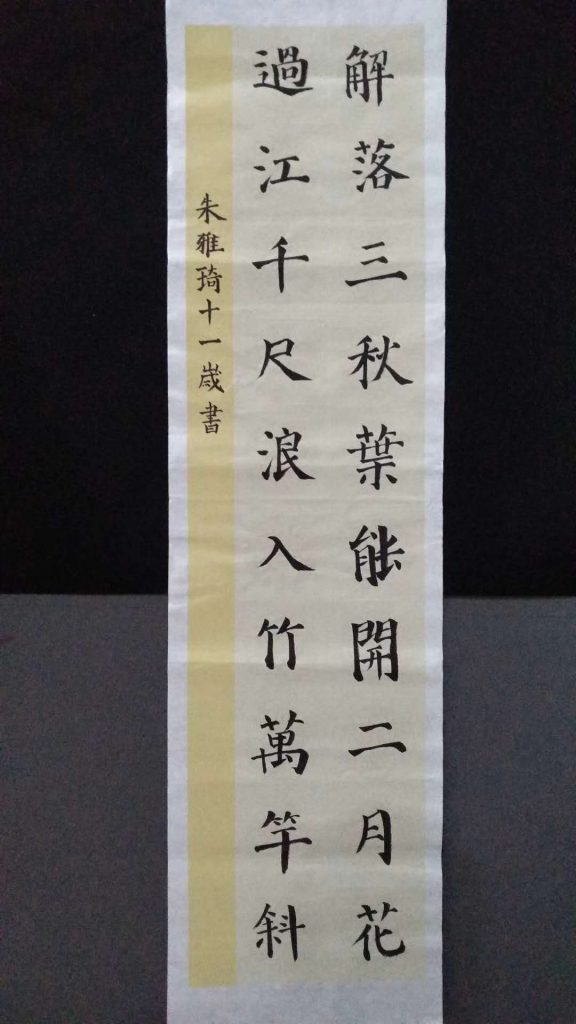 解落三秋葉能開二月花
過江千尺浪入竹萬竿斜
朱雅琦十一歲書